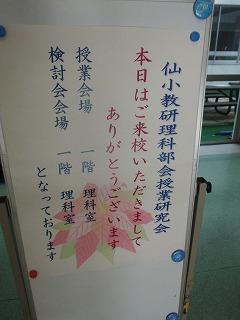 仙小教研理科部会授業研究会
本日はご来校いただきまして
ありがとうございます
授業会場　一階　理科室
検討会会場　一階　理科室
となっております